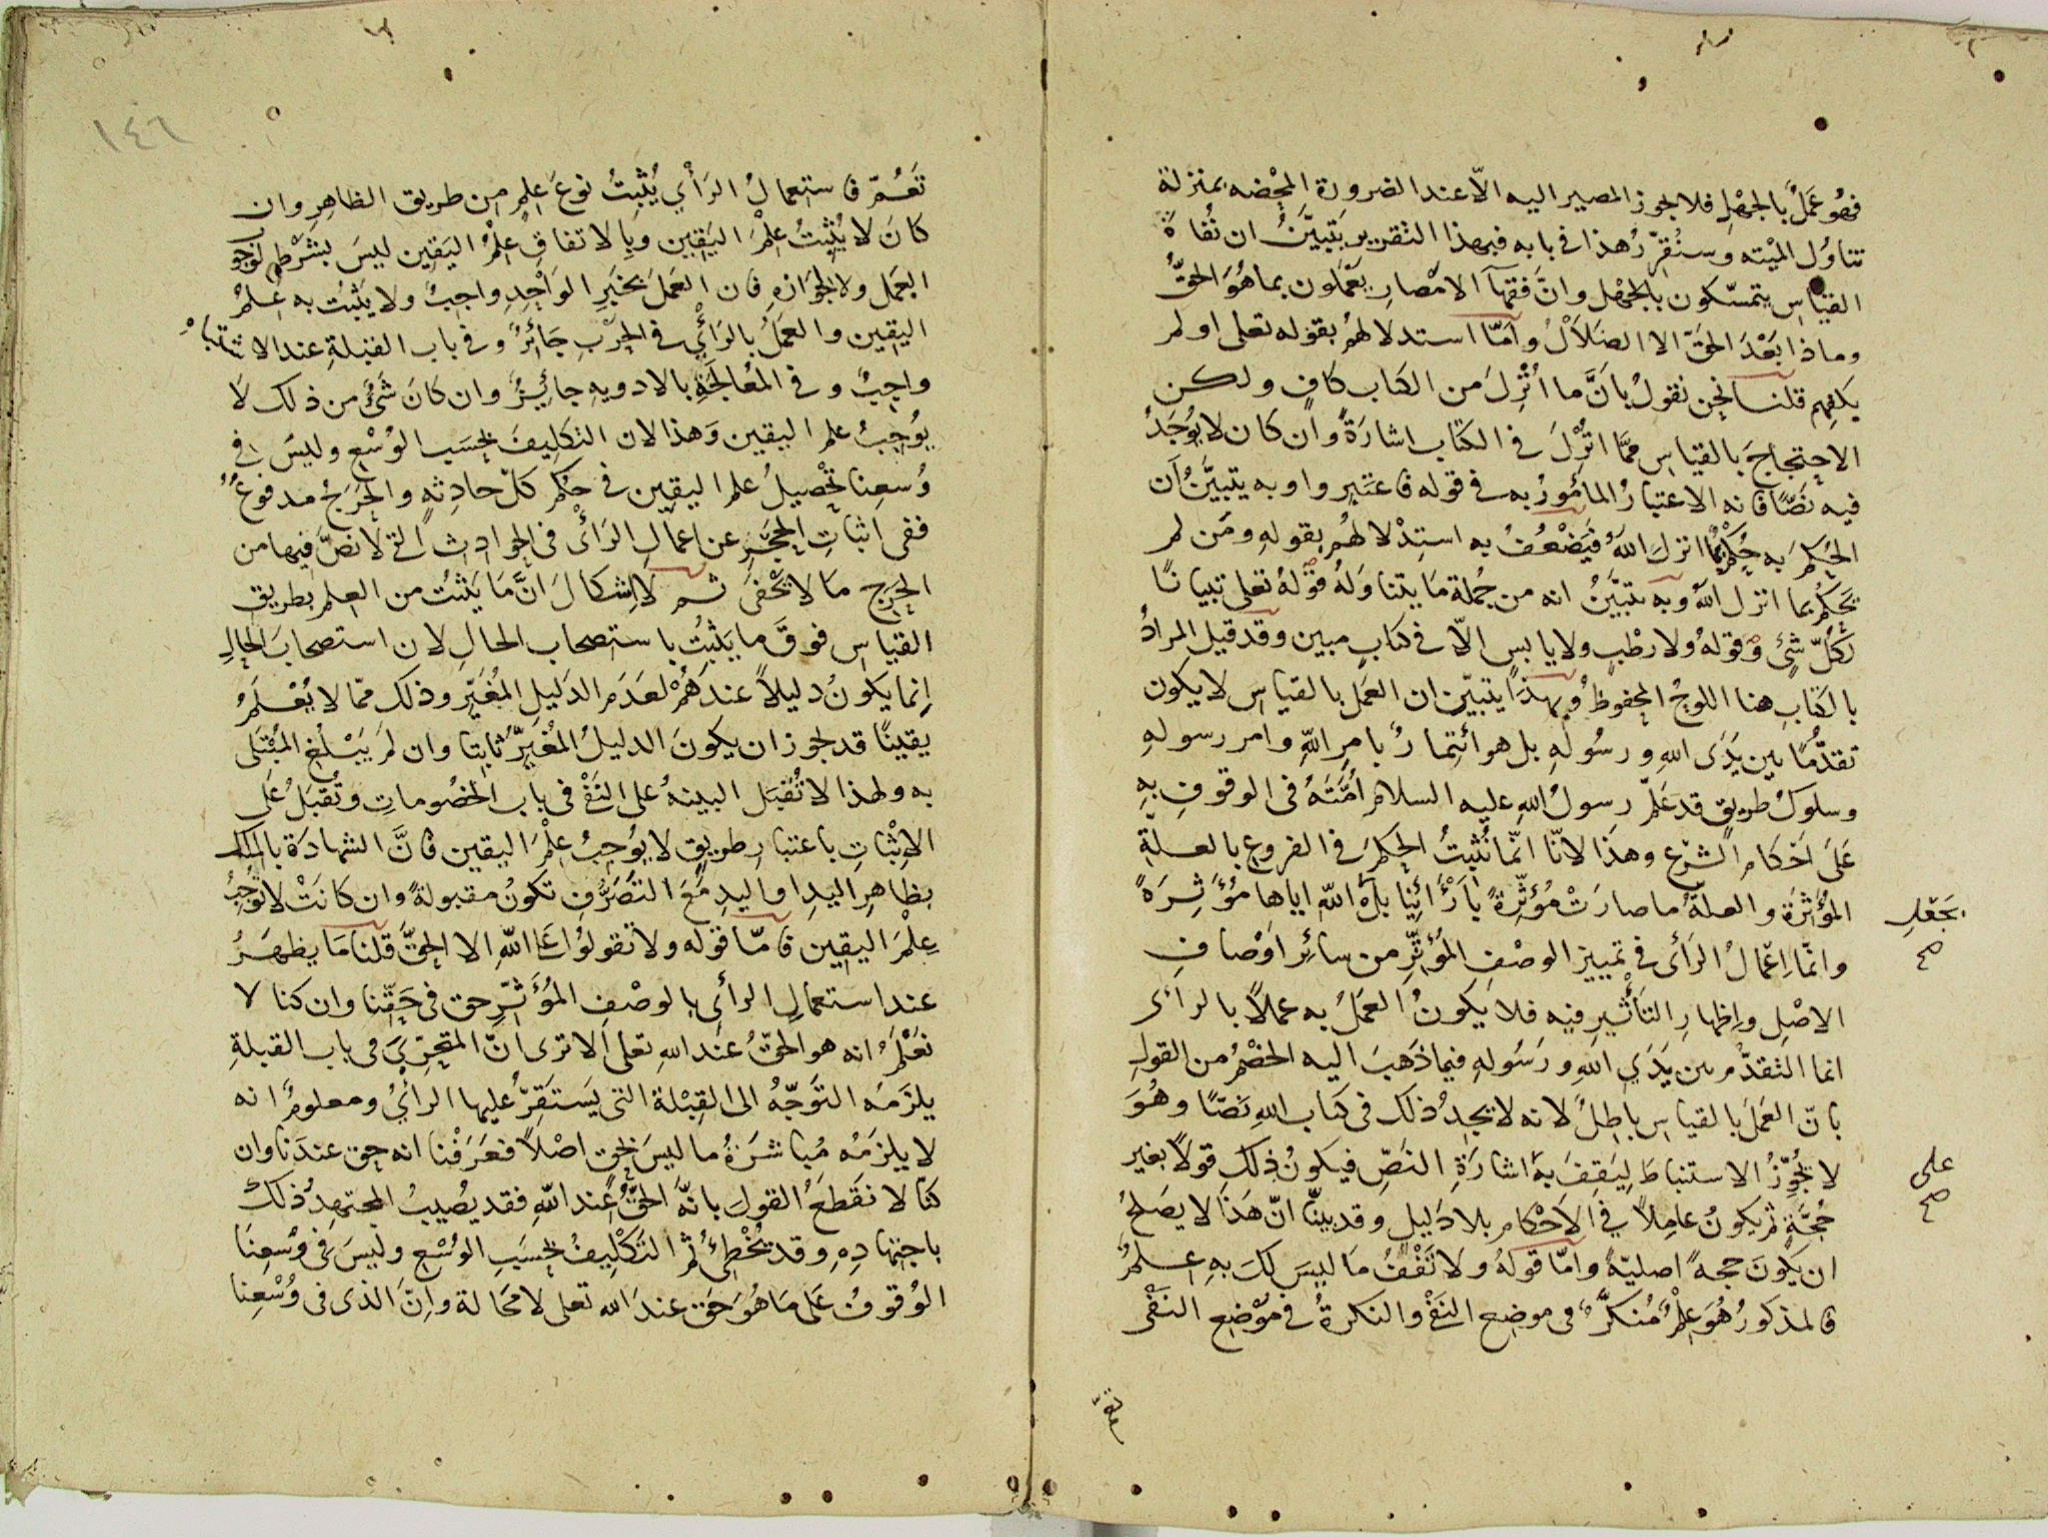 فهو عَمَلٌ بالجَهْلِ فلا يجوز المصير اليه الّا عند الضرورة المحْضه بمنزلة
تناوُل الميْته وسنُقرّرُ هذا في بابه فبهذا التقرير يتبيَّنُ ان نُفاةَ
القياسِ يتمسّكون بالجهْل وانَّ فقهآ الامْصارِ يعمَلون بما هُوَ الحقُّ
وماذا بَعْدَ الحَقّ الا الضَلاَلُ وامّا استدلالهُم بقوله تعلى اولم
يكفِهم قلنا نحن نقولُ بانَّ ما اُنْزِلَ من الكتاب كافٍ ولكن
الاحتجاجَ بالقياس ممَّا انْزِلَ في الكتاب اشارَةً وان كان لا يُوجَدُ
فيه نصًّا فانه الاعتبارُ المأمُورُ به في قوله فاعتبروا وبه يتبيَّنُ ان
الحُكمَ به حُكمٌ بما انزلَ اللّهُ فيَضْعُفُ به استِدْلالهُم بقولهِ ومَن لم
يَحكُم بما انزل اللّهُ وبه يتبَيَّنُ انه من جُملة مَا يتناوَلهُ قوْلهُ تعلى تبيانًا
لكُلّ شئٍ وقولهُ ولا رطْبٍ ولا يابس الّا في كتابٍ مبين وقد قيل المرادُ
بالكتابِ هنا اللوحُ المحفوظُ وبهذا يتبيّن ان العمَل بالقياس لا يكون
تقدّمًا بين يَدَى اللهِ ورسُولهِ بل هو ائتمارٌ بامرِ اللّهِ وامر رسولهِ
وسلوكُ طريقٍ قد علّم رسولُ اللهِ عليه السلام امَّتَهُ في الوقوفِ بهِ
عَلَى احَكام الشرْعِ وهذا لانّا انّما نُثبِتُ الحكمَ في الفروع بالعلةِ
المؤثرَةِ والعلةُ ما صارَتْ مُؤثِّرةً بارَائِنا بل اللّهِ اياها مُؤثِرَةً
بجَعْلِ
صح
وانّمَا اِعْمالُ الرَأى في تمييز الوصْفِ المُؤثّرِ من سائرِ اوْصافِ
الاصْلِ واِظهارِ التأثيرِ فيه فلا يكونُ العمَلُ به عملاً بالرأى
انما التقدّم بين يَدَيِ اللهِ ورَسُولهِ فيما ذهَبَ اليه الخصْمُ من القولِ
بانّ العَمَلَ بالقياس باطِلٌ لانه لا يَجدُ ذلك في كتاب اللهِ نصًّا وهُوَ
لا يُجوّزُ الاستنباطَ ليَقِفَ به اشارَةِ النصّ فيكونُ ذلك قولاً بغير
على
صح
حُجَّةٍ ثم يكونُ عامِلاً في الاحْكام بلا دَليلٍ وقد بيَّنّا انّ هَذا لا يصَلحُ
ان يكونَ حجةً اصليّةً وامّا قولهُ ولا تَقْفُ مَا ليسَ لكَ بهِ عِلمٌ
فالمذكورُ هُوَ عِلْمٌ مُنكرٌ في موضِع النَفْى والنكرةُ في موْضِعِ النفْى
تعمّ
١٤٦
تَعُمّ فاستعمالُ الرَأْي يُثْبِتُ نوعَ علِمٍ من طريق الظاهِر وان
كانَ لا يُثبِتُ علْمَ اليَقِين وبِالاتفاقِ علْمُ اليَقِين ليسَ بشَرْطٍ لوُجوبِ
العَمَل ولا لجَوَازهِ فان العَمَلَ بخبَرِ الوَاحِدِ واجبٌ ولا يَثبُت به علمُ
اليقِين والعمَلُ بالرَأي في الحَرْبِ جَائزٌ وفي باب القبْلةِ عند الاشتباهِ
واجبٌ وفي المُعالَجَةِ بالادويهِ جائِزٌ وان كانَ شَئٌ من ذلك لاَ
يُوجِبُ علم اليقين وَهذا لان التكليفَ بحَسَب الوُسْعِ وليسَ في
وُسعِنا تحْصيلُ علم اليقِين في حُكم كلّ حادِثهٍ والحَرَجُ مدفوعٌ
ففي اثباتِ الحَجْرِ عن اعْمال الرَائْ في الحوادِث التي لا نصَّ فيها من
الحَرَج مَا لا يَخْفَى ثم لا اِشكالَ انَّ مَا يَثبُت من العِلم بطريقِ
القياسِ فوقَ ما يَثبُتُ باستصحاب الحالِ لان استصحابَ الحالِ
اِنما يكونُ دليلاً عندَهُمْ لعدَم الدَليلِ المُغَيّرِ وذلك ممّا لا يُعْلَمُ
يقينًا قد يجوز ان يكونَ الدليلُ المُغَيِّرُ ثابِتا وان لم يَبْلُغِ المبتَلى
به ولهذا لا تُقبَل البينهُ على النَفْى في باب الخصُوماتِ وتُقبَلُ على
الاِثباتِ باعتبارِ طريقٍ لا يُوجِبُ علْمَ اليقين فانَّ الشهادَة بالملك
بظاهرِ اليدِ او اليدِ معَ التَصَرُّفِ تكونُ مقبولةً وان كانَتْ لا توُجِبُ
عِلْمَ اليقين فامّا قوله ولا تقولوُا عَلَى اللّهِ الا الحقَّ قلنا مَا يظهَرُ
عند استعمالِ الرأي بالوصْفِ المؤَثّرِ حق في حَقّنا وان كنا لا
نعْلَمُ انه هو الحَقُ عند اللهِ تعلى اَلا ترى انّ المتحرّيَ في باب القبلةِ
يلزَمُه التوَجّهُ الى القِبْلة التي يَستَقِرّ عليها الرأيُ ومعلومٌ انه
لا يلزَمُه مُباشَرَةُ ما ليسَ بحق اصْلاً فعَرَفْنا انه حق عندَنا وان
كنّا لا نقطَعُ القولَ بانَّه الحَقُّ عند اللّهِ فقد يُصِيبُ المجتهدُ ذلك
باجتهادِهِ وقد يُخْطِئُ ثم التَكْلِيفُ بحَسَبِ الوُسْعِ وليسَ في وُسْعِنَا
الوُقوفُ عَلى مَا هُوَ حَق عندَ الله تعلى لا محَالة وانّ الذى في وُسْعِنا